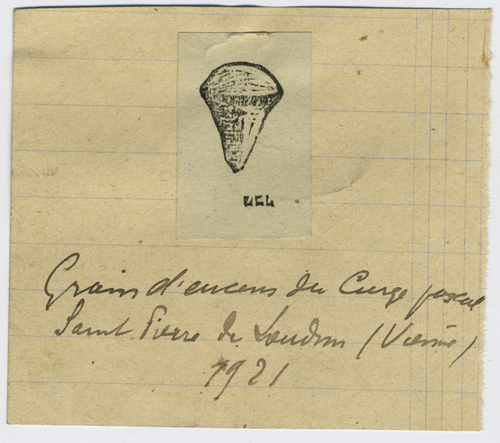 Grain d'encens du Cierge pascal
Saint Pierre de Loudun (Vienne)
1921